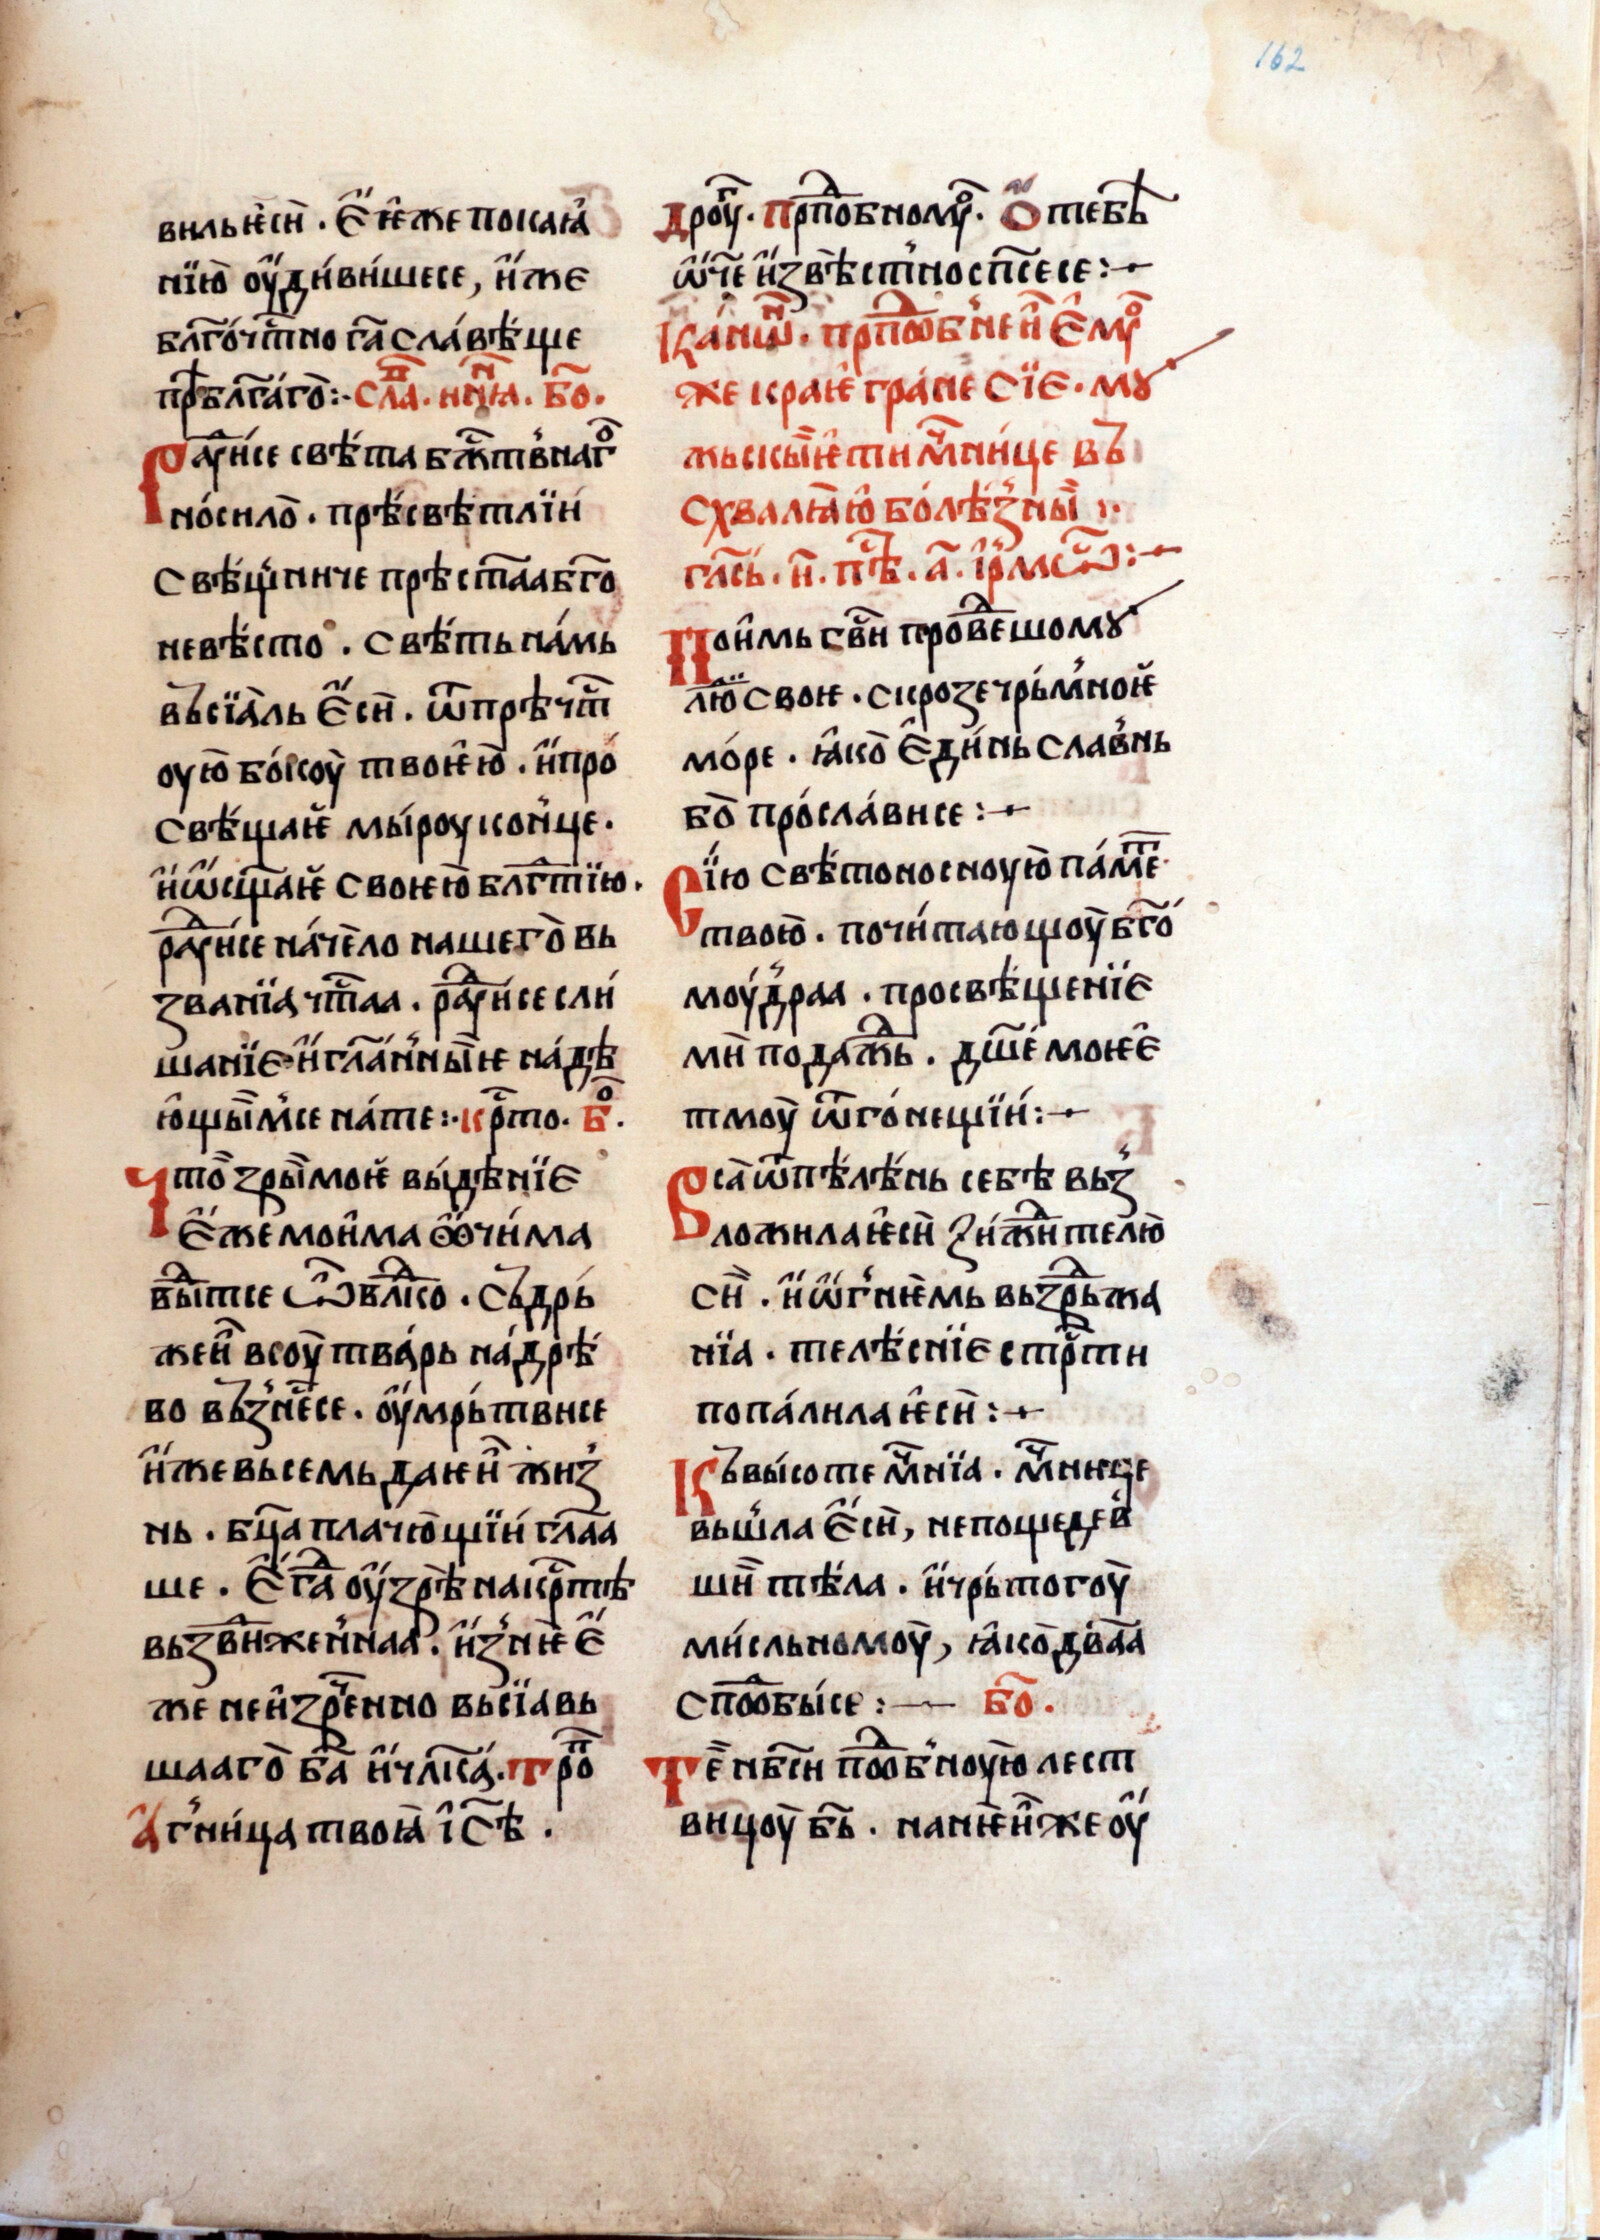 162
вильѥ҆сѝ . Е҆҃ѥже покаꙗ҆
нїю̀ оу҆ди́ви́шесе, и҆́же
бл҃гоч҃тⷭ҇но га҃ сла́вѣ́ще
прѣ́бл҃га́го̀ :· сла́ⷡ . нн҃ꙗ . бо҃ .
Раⷣуи́се свѣ́та бжⷭ҇тв҆наг ⷪ
но́сило̀ . прѣ́свѣ́тлїи́
свѣ́щ҆ниче прѣст҃аа бг҃о
невѣ́сто . свѣ́ть на́мь
въсїа̀ль Е҆́сѝ . ѿпрѣч҃тⷭ
оую̀ бо́коу̀ твоѥ҆ю̀ . и҆́про́
свѣ́щаѥ̀ мы́роу кон҆це .
и҆́ѡ҆́сщ҃аѥ̀ своѥю̀ бл҃гⷣтїю .
раⷣуи́се на́чѐло нашего̀ вь
званїꙗ ч҃тⷭаа . раⷣуи́се сли́
шанїе и҆́гл҃а́н҆ны̏ѥ на́дѣ
ю҆щы̏м҆се на́те :· крⷭ҇то . бⷪ .
Что̀ зры̏моѥ̀ вы́дѣнїе
Е҆́же мои҆ма ѻ҆́чи́ма
вы̏ⷣтсе ѽвлⷣко . съдрь́
жеѝ всоу̀ тва́рь на́дрѣ́
во въз҆не̏ⷭсе . оу҆́мрь́твисе
и҆́же вьсемь даѥѝ жиз҆
нь . бц҃а плачю̀щїи́ гл҃аа
ше . Е҆́гⷣа оу҆́зрѣ̀ накрⷭ҇тѣ
вьздви́жен҆наа . и҆́з҆нѥ̀ е҆́
же неи҆зрⷱенно вьсїавь
шааго̀ б҃а и҆́чл҃ка́ . трⷪп
А҆́г҆ни́ца твоꙗ̀ і҆с҃ѣ .
дроуⷢ . прпⷣобномуⷪ . Ѻ҆́тебѣ
ѿч҃е и҆́звѣ́ст҆но сп҃сесе :·
Ка́нѡⷩ . прпⷣѡб҆неѝ е҆му́ⷪ
же краѥ̀ гра́не сїе . му
жьскы̏ѥ҆ ти мⷱ҇ни́це въ
схвалꙗ̀ю̀ бо́лѣ́з҆ны̏ :·
гла́сь . и҃ . пⷭ҇ѣ . а҃ . і҆рмⷪсѡ̀ :·
Пои҆мь гвⷭ҇и проⷡ҇ешому
лю̏ⷣ своѥ . скрозе чрь́м҆ноѥ̀
мо́ре . ꙗ҆ко̀ е҆ди́нь слав҆нь
бо̀ про́сла́висе :·
Сїю свѣ́тоносноую̀ па́меⷮ
твою̀ . почи́тающоу̀ бг҃о́
моу́д҆раа . просвѣ̀щенїе
мѝ подажⷣь . дш҃е́ моѥе҆
тмоу̀ ѿго́нещїи́ :·
Вса̀ ѿпѣ́лѣ́нь себѣ вьз҆
ложилаѥ҆сѝ зи́жⷣителю̀
сѝ . и҆́ѡ҆́г҆нѥ̀мь вьздрьжа
нїа . телѣ́снїе стрⷭ҇ти
попа́лилаѥ҆сѝ :·
Къвы́соте мⷱ҇нїа . мⷱ҇нице
вьш҆ла е҆́сѝ, непощедев҆
шѝ тѣ́ла . и҆́чрь́тогоу̀
ми́сльномоу̀, ꙗ҆ко̀ дв҃аа
споⷣобы́се :· бо҃ .
Те̏ нбⷭ҇и поⷣоб҆ноую̀ лест
вицоу̀ бь̀ . нанѥи҆же оу҆́